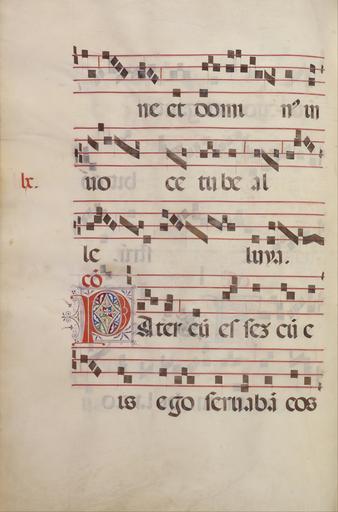 ne et domi nus in
uo ce tu be al
lx.
le luya.
cō
Pater cū es sez cū e
is ego seruabā eos